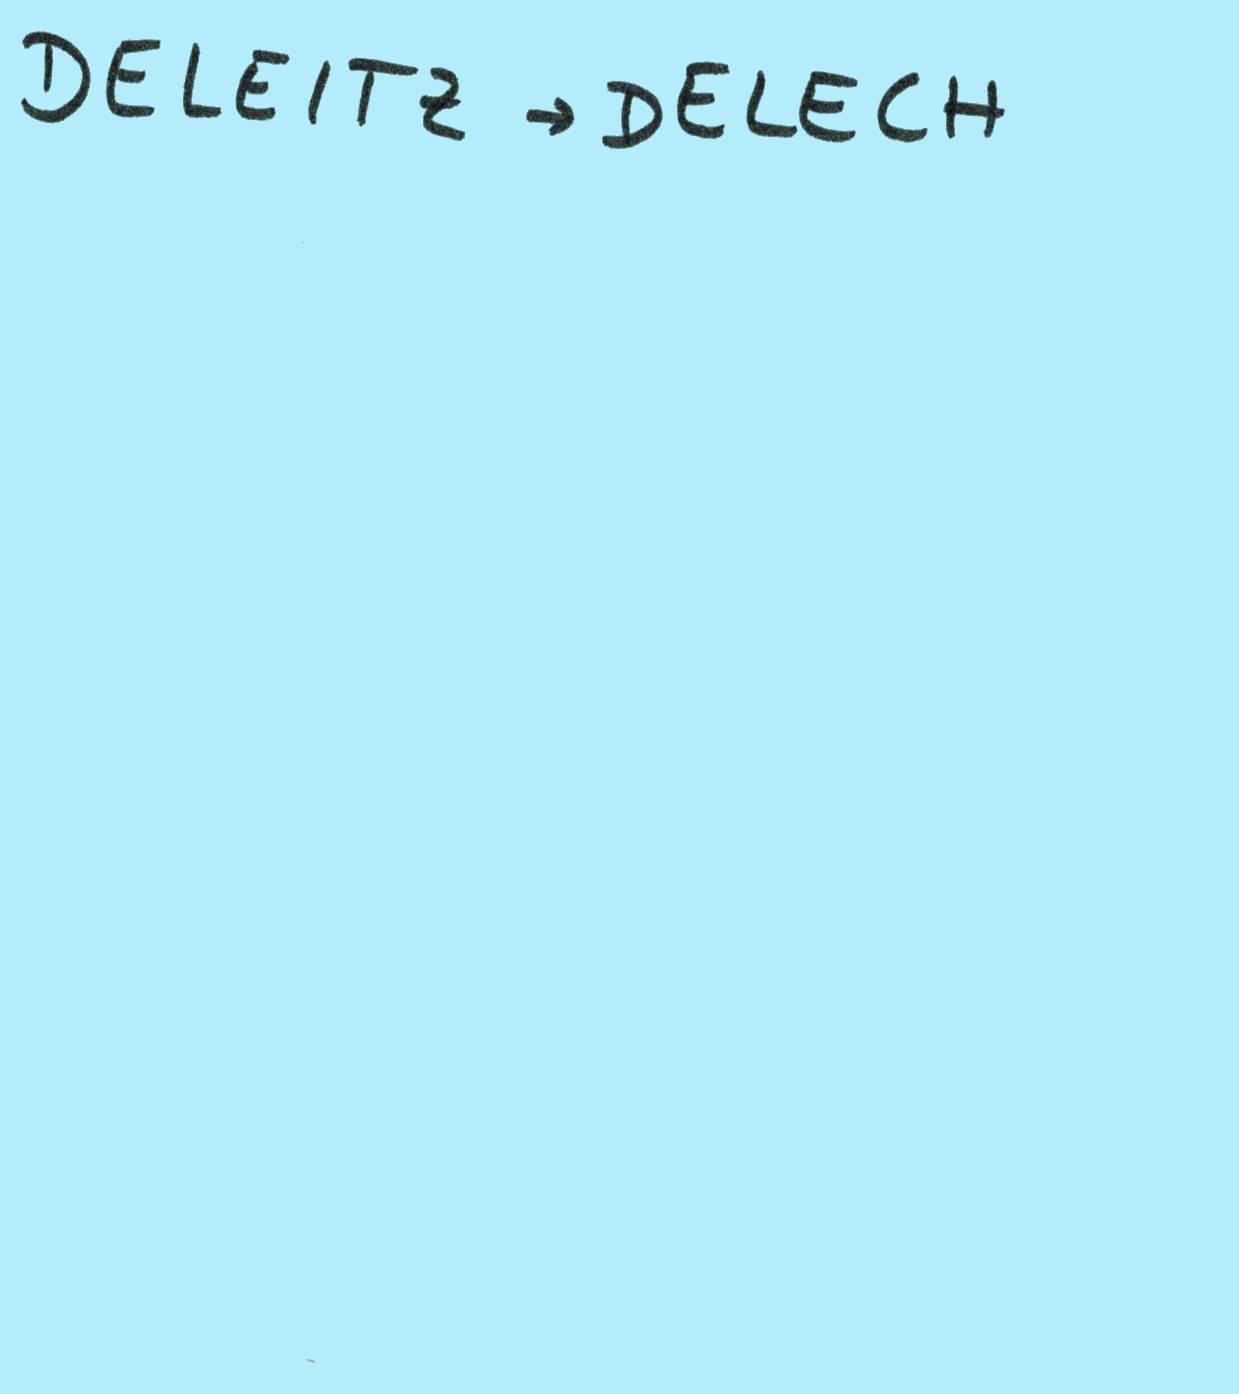 DELEITZ → DELECH